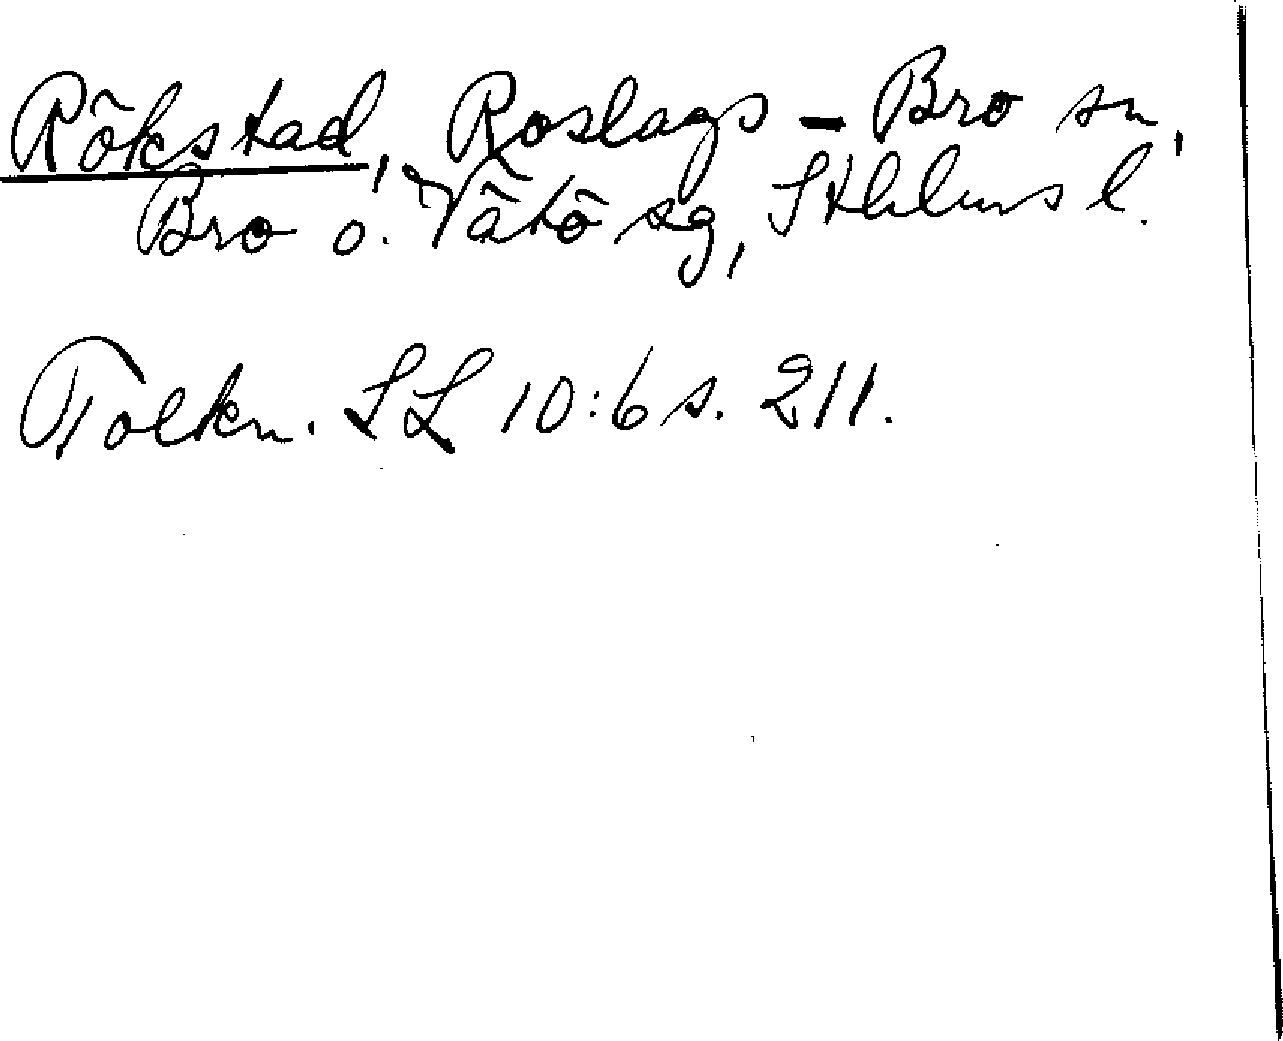 Rökstad, Roslags-Bro sn,
Bro o. Vätö sg, Sthlms l.
Tolkn. SL 10:6 s. 211.